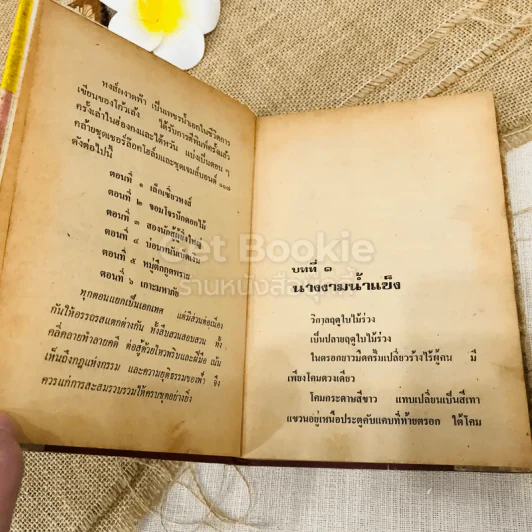 หงส์ผงาดฟ้า เป็นเพชรน้ำเอกในชีวิตการ
เขียนของโก้วเล้ง ได้รับการตีพิมพ์ครั้งแล้ว
ครั้งเล่าในฮ่องกงและไต้หวัน แบ่งเป็นตอน ๆ
คล้ายชุดเชอร์ล็อคโฮล์มและชุดเจมส์บอนด์ ๐๐๗
ดังต่อไปนี้
ตอนที่ ๑ เล็กเซี่ยวหงส์
ตอนที่ ๒ จอมโจรปักดอกไม้
ตอนที่ ๓ สองนักสู้ผู้ยิ่งใหญ่
ตอนที่ ๔ บ่อน
ตอนที่ ๕ หมู่ตึกภูตพราย
ตอนที่ ๖ เกาะมหาภัย
ทุกตอนแยกเป็นเอกเทศ แต่มีส่วนต่อเนื่อง
กันให้อรรถรสแตกต่างกัน ทั้งสืบสวนสอบสวน ทั้ง
คลี่คลายทำลายคดี ต่อสู้ด้วยไหวพริบและฝีมือ เน้น
เห็นถึงกฎแห่งกรรม และความยุติธรรมของฟ้า จึง
ควรแก่การสะสมรวบรวมให้ครบชุดอย่างยิ่ง
Get Bookie
ร้านหนังสือ
บทที่ ๑
นางงามน้ำแข็ง
วิกาลฤดูใบไม้ร่วง
เป็นปลายฤดูใบไม้ร่วง
ในตรอกยาวมืดครึ้มเปลี่ยวร้างไร้ผู้คน มี
เพียงโคมดวงเดียว
โคมกระดาษสีขาว แทบเปลี่ยนเป็นสีเทา
แขวนอยู่เหนือประตูคับแคบที่ท้ายตรอก ใต้โคม